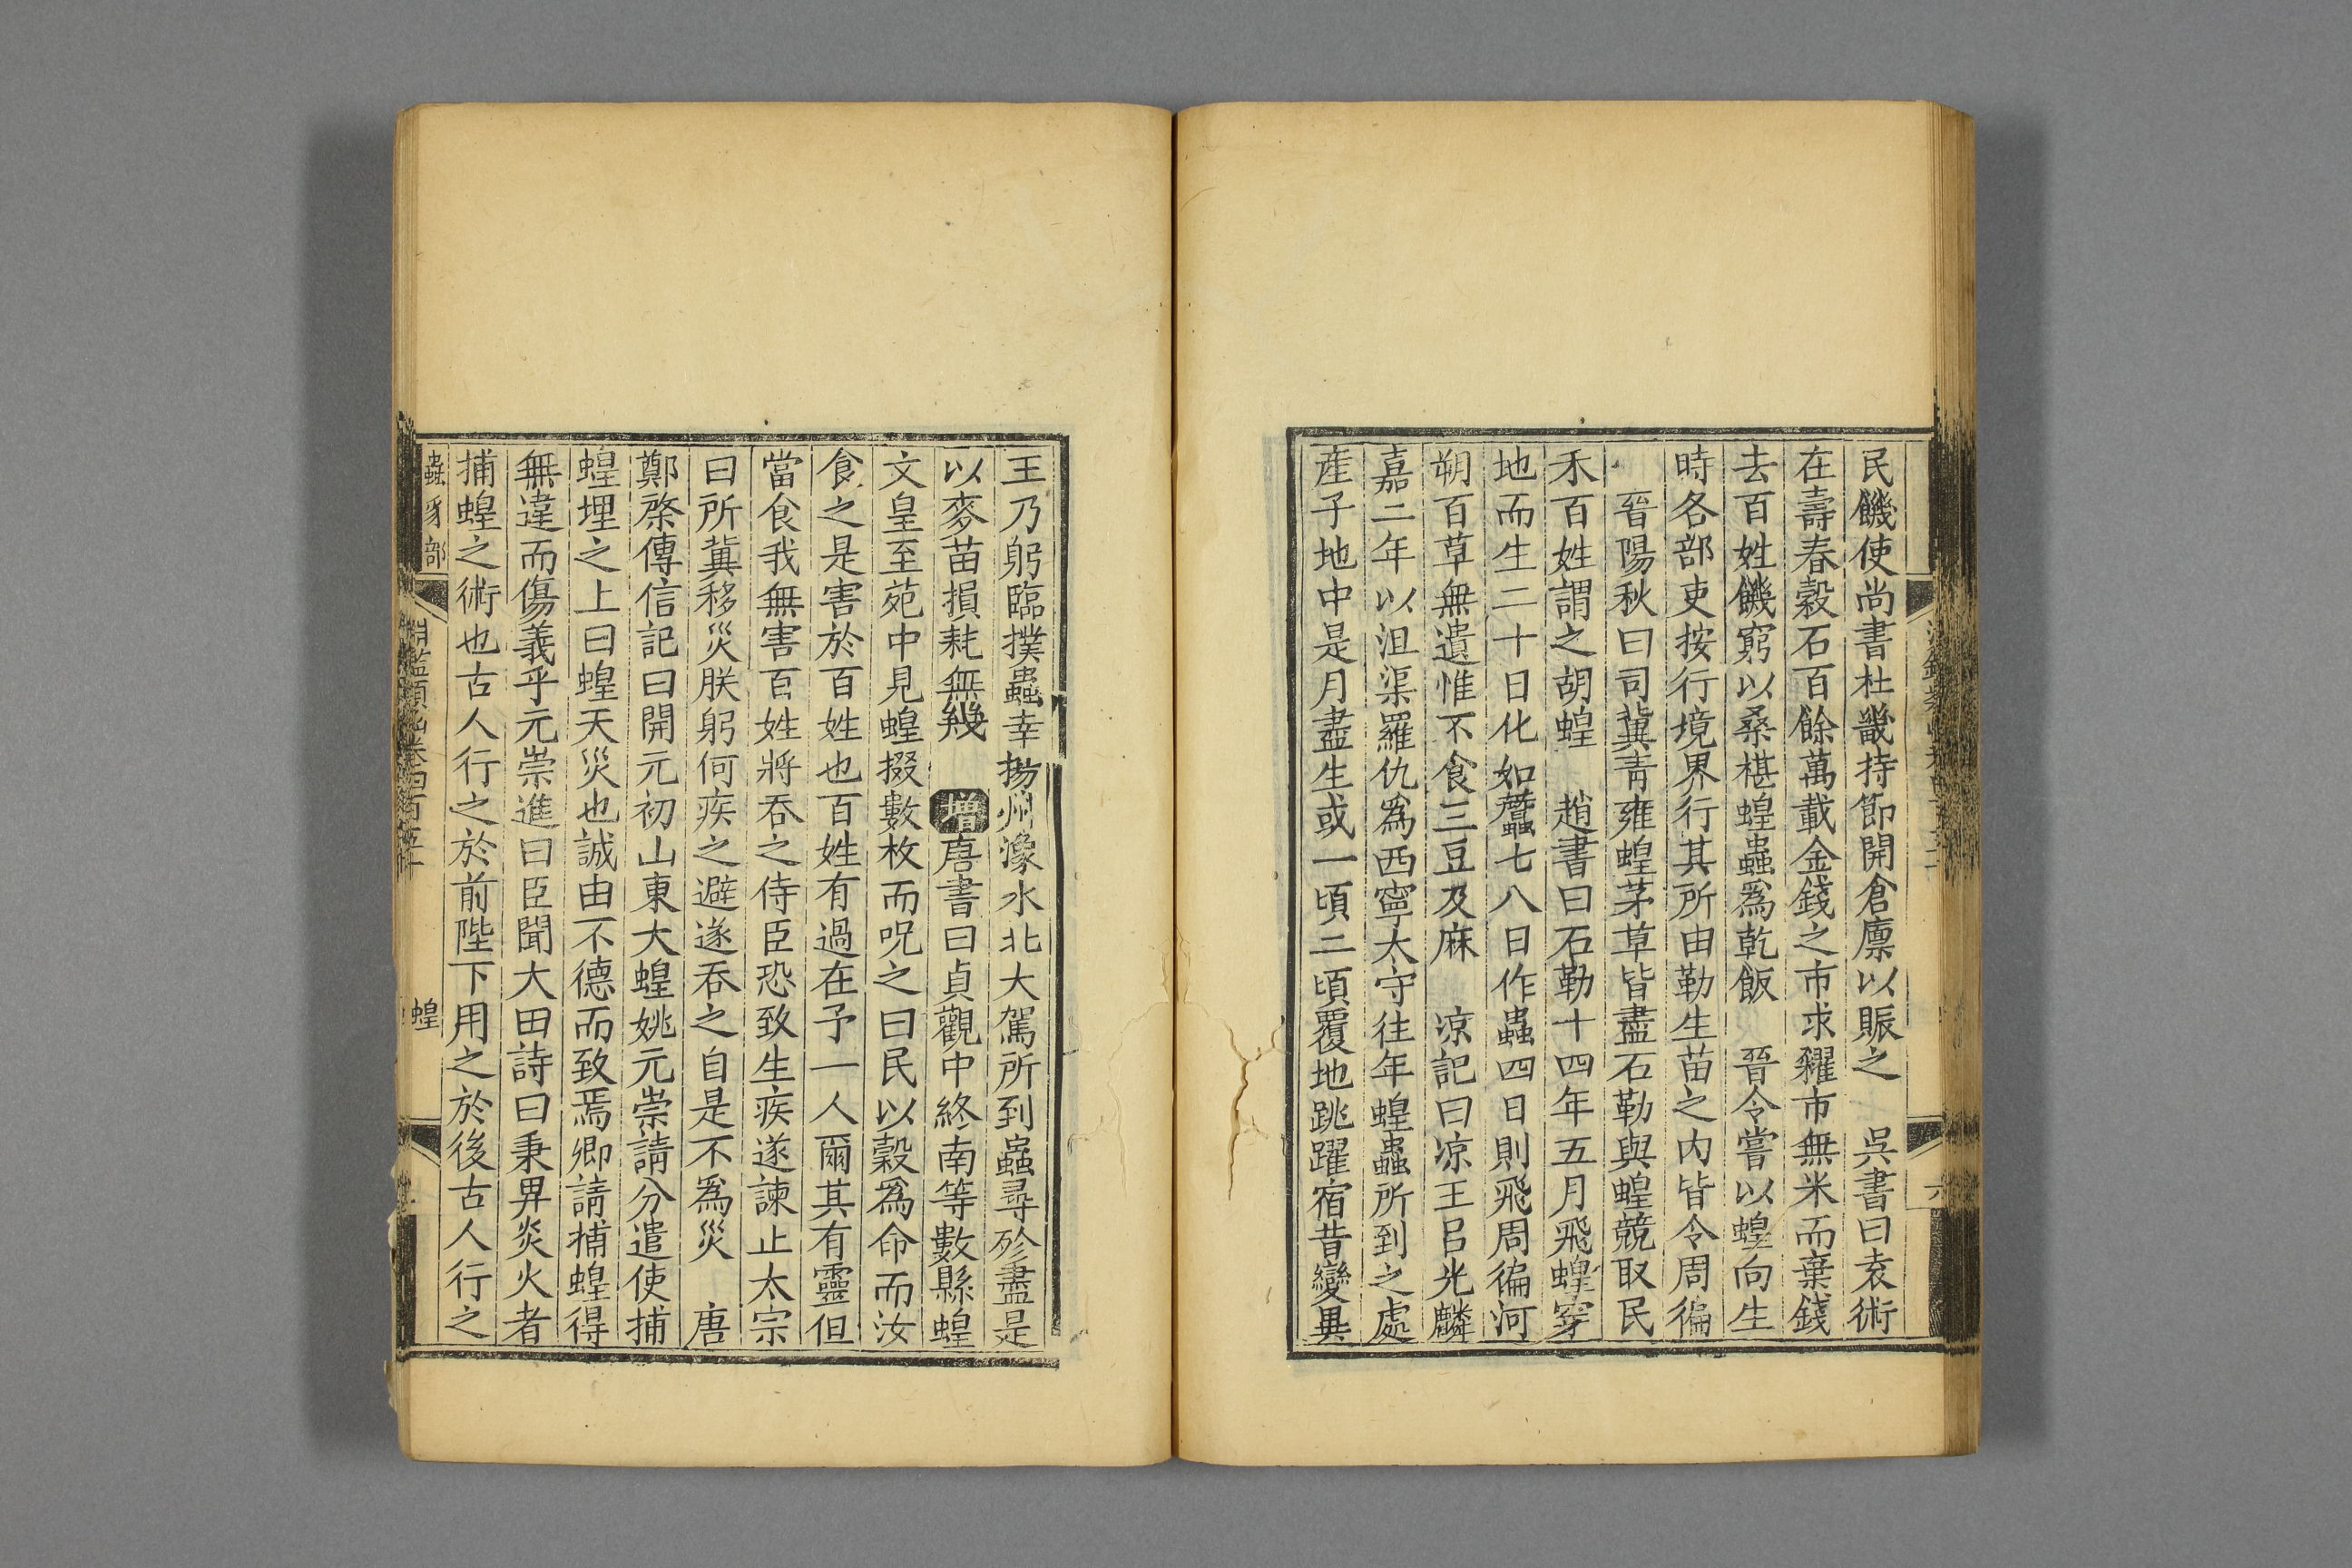 民饑使尚書杜畿持節開倉廪以賑之　吳書曰袁術
在壽春穀石百餘萬載金錢之市求糴市無米而棄錢
去百姓饑窮以桑椹蝗蟲爲乾飯　晉令嘗以蝗向生
時各部吏按行境界行其所由勒生苗之内皆令周徧
晉陽秋曰司冀靑雍蝗茅草皆盡石勒與蝗競取民
禾百姓謂之胡蝗　趙書曰石勒十四年五月飛蝗穿
地而生二十日化如蠶七八日作蟲四日則飛周徧河
朔百草無遺惟不食三豆及麻　凉記曰凉王呂光麟
嘉二年以沮渠羅仇爲西寧太守往年蝗蟲所到之處
產子地中是月盡生或一頃二頃覆地跳躍宿昔變異
王乃躬臨撲蟲幸揚州濠水北大駕所到蟲尋殄盡是
以麥苗損耗無幾　增唐書曰貞觀中終南等數縣蝗
文皇至苑中見蝗掇數枚而呪之曰民以穀爲命而汝
食之是害於百姓也百姓有過在予一人爾其有靈但
當食我無害百姓將吞之侍臣恐致生疾遂諫止太宗
曰所冀移災朕躬何疾之避遂吞之自是不爲災　唐
鄭棨傳信記曰開元初山東大蝗姚元崇請分遣使捕
蝗埋之上曰蝗天災也誠由不德而致焉卿請捕蝗得
無違而傷義乎元崇進曰臣聞大田詩曰秉畀炎火者
捕蝗之術也古人行之於前陛下用之於後古人行之
蟲豸部
淵鑑類函卷四百五十
蝗